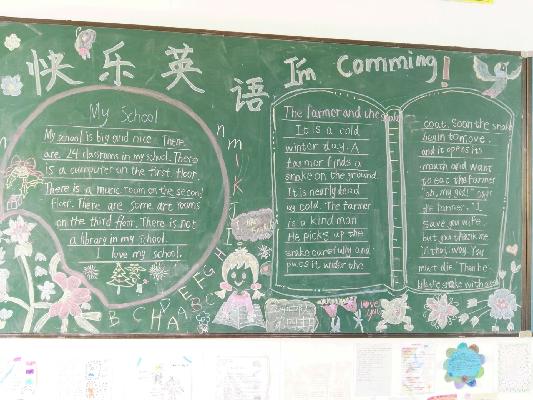 快乐英语
I'm Comming!
My School
My school is big and nice. There
are 24 classrooms in my school. There
is a computer on the first floor.
There is a music room on the second
floor. There are some art rooms
on the third floor. There is not
a library in my school.
I love my school.
The farmer and the snake
It is a cold
winter day. A
farmer finds a
snake on the ground.
It is nearly dead
by cold. The farmer
is a kind man
He picks up the
snake carefully and
puts it under the
coat. Soon the snake
begin to move.
and it opens its
mouth and want
to eat the farmer
"oh, my god!"
the farmer. "I
save you life
but you thank me
in that way. You
must die. Then he
snake with a